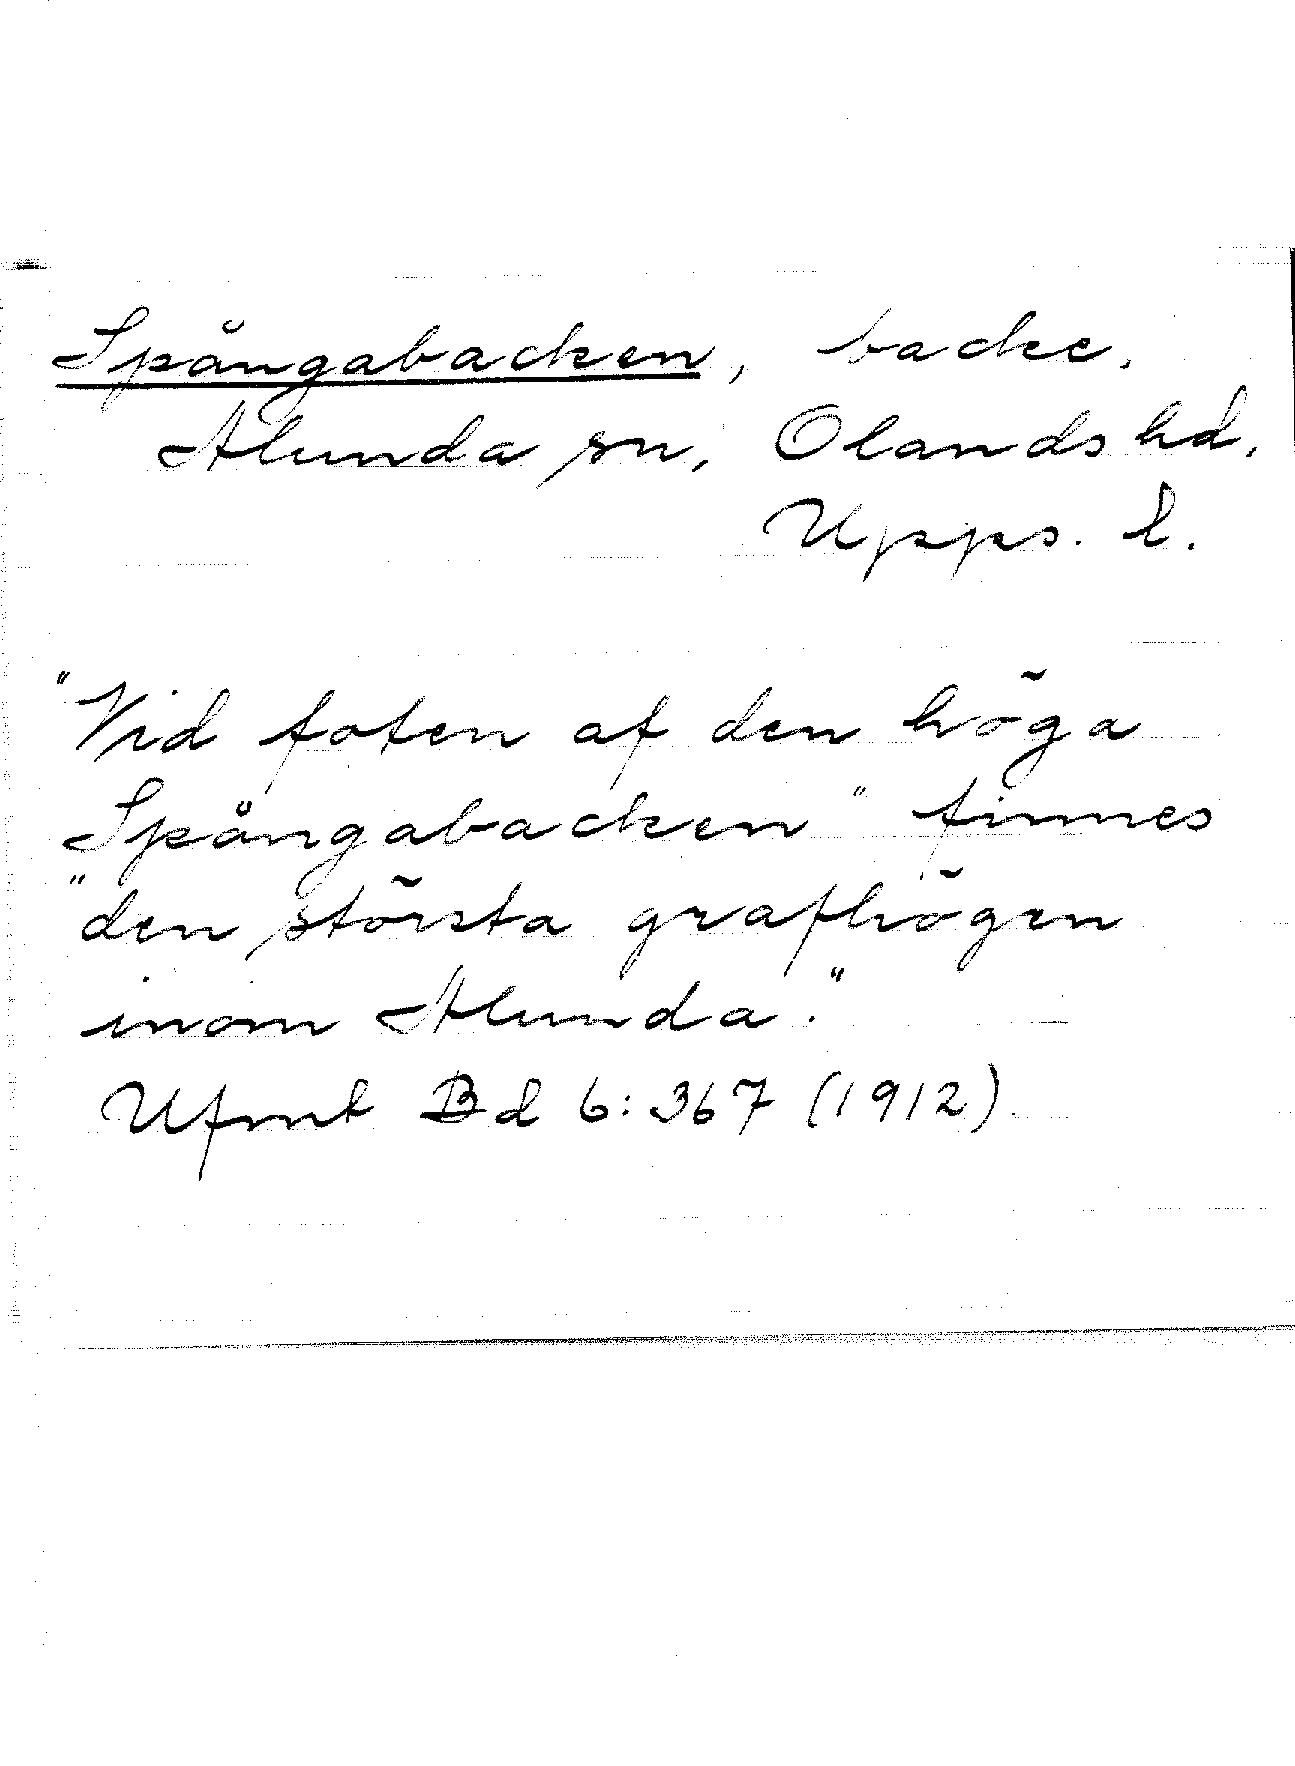 Spångabacken, backe.
Alunda sn, Olands hd,
Upps. l.
"Vid foten af den höga
Spångabacken" finnes
"den största grafhögen
inom Alunda."
Ufmt Bd 6:367 (1912)